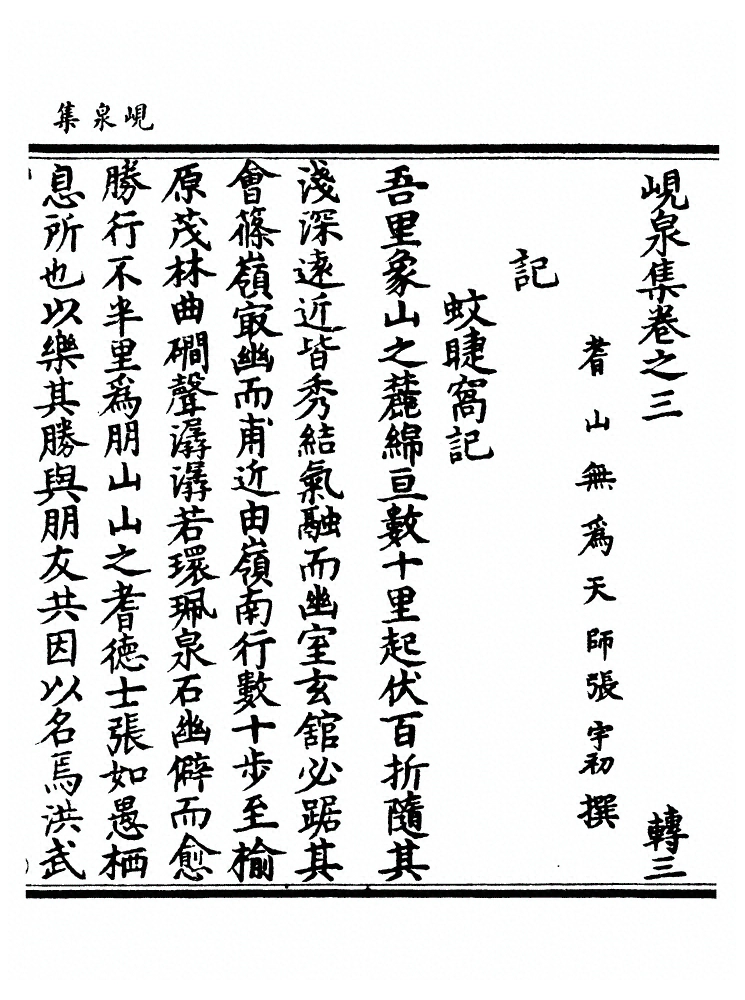 峴泉集
峴泉集卷之三 轉三
耆山無為天師張宇初撰
記
蚊睫窩記
吾里象山之麓綿亘數十里起伏百折隨其
淺深遠近皆秀結氣融而幽室玄舘必踞其
會篠嶺㝡幽而甫近由嶺南行數十步至榆
原茂林曲磵聲潺潺若環珮泉石幽僻而愈
勝行不半里爲朋山山之耆德士張如愚栖
息所也以樂其勝與朋友共因以名焉洪武